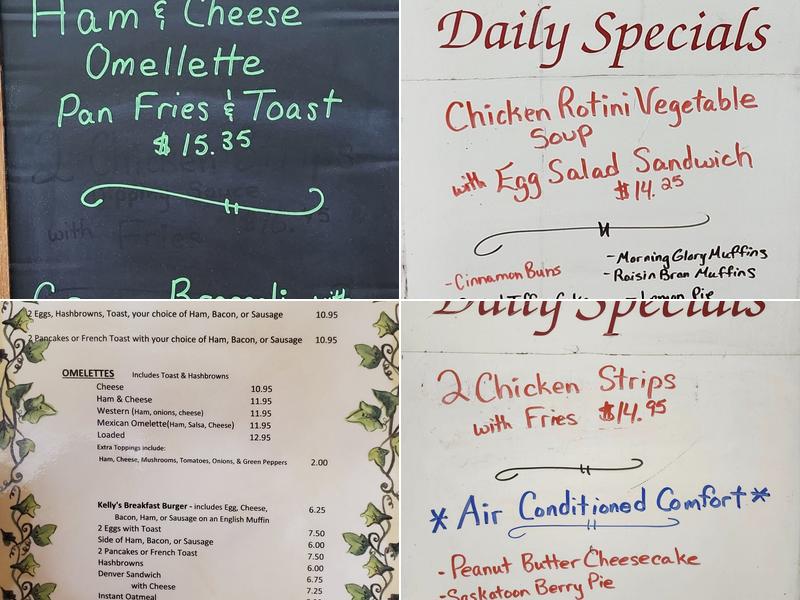 Ham & Cheese
Omellette
Pan Fries & Toast
$15.35
with Fries
with
Daily Specials
Chicken Rotini Vegetable
Soup
with Egg Salad Sandwich
$14.25
- Cinnamon Buns
- Morning Glory Muffins
- Raisin Bran Muffins
- Lemon Pie
2 Eggs, Hashbrowns, Toast, your choice of Ham, Bacon, or Sausage 10.95
2 Pancakes or French Toast with your choice of Ham, Bacon, or Sausage 10.95
OMELETTES Includes Toast & Hashbrowns
Cheese 10.95
Ham & Cheese 11.95
Western (Ham, onions, cheese) 11.95
Mexican Omelette(Ham, Salsa, Cheese) 11.95
Loaded 12.95
Extra Toppings include:
Ham, Cheese, Mushrooms, Tomatoes, Onions, & Green Peppers 2.00
Kelly's Breakfast Burger - includes Egg, Cheese, 6.25
Bacon, Ham, or Sausage on an English Muffin
2 Eggs with Toast 7.50
Side of Ham, Bacon, or Sausage 6.00
2 Pancakes or French Toast 7.50
Hashbrowns 6.00
Denver Sandwich 6.75
with Cheese 7.25
Instant Oatmeal
Daily Specials
2 Chicken Strips
with Fries $14.95
* Air Conditioned Comfort *
- Peanut Butter Cheesecake
- Saskatoon Berry Pie